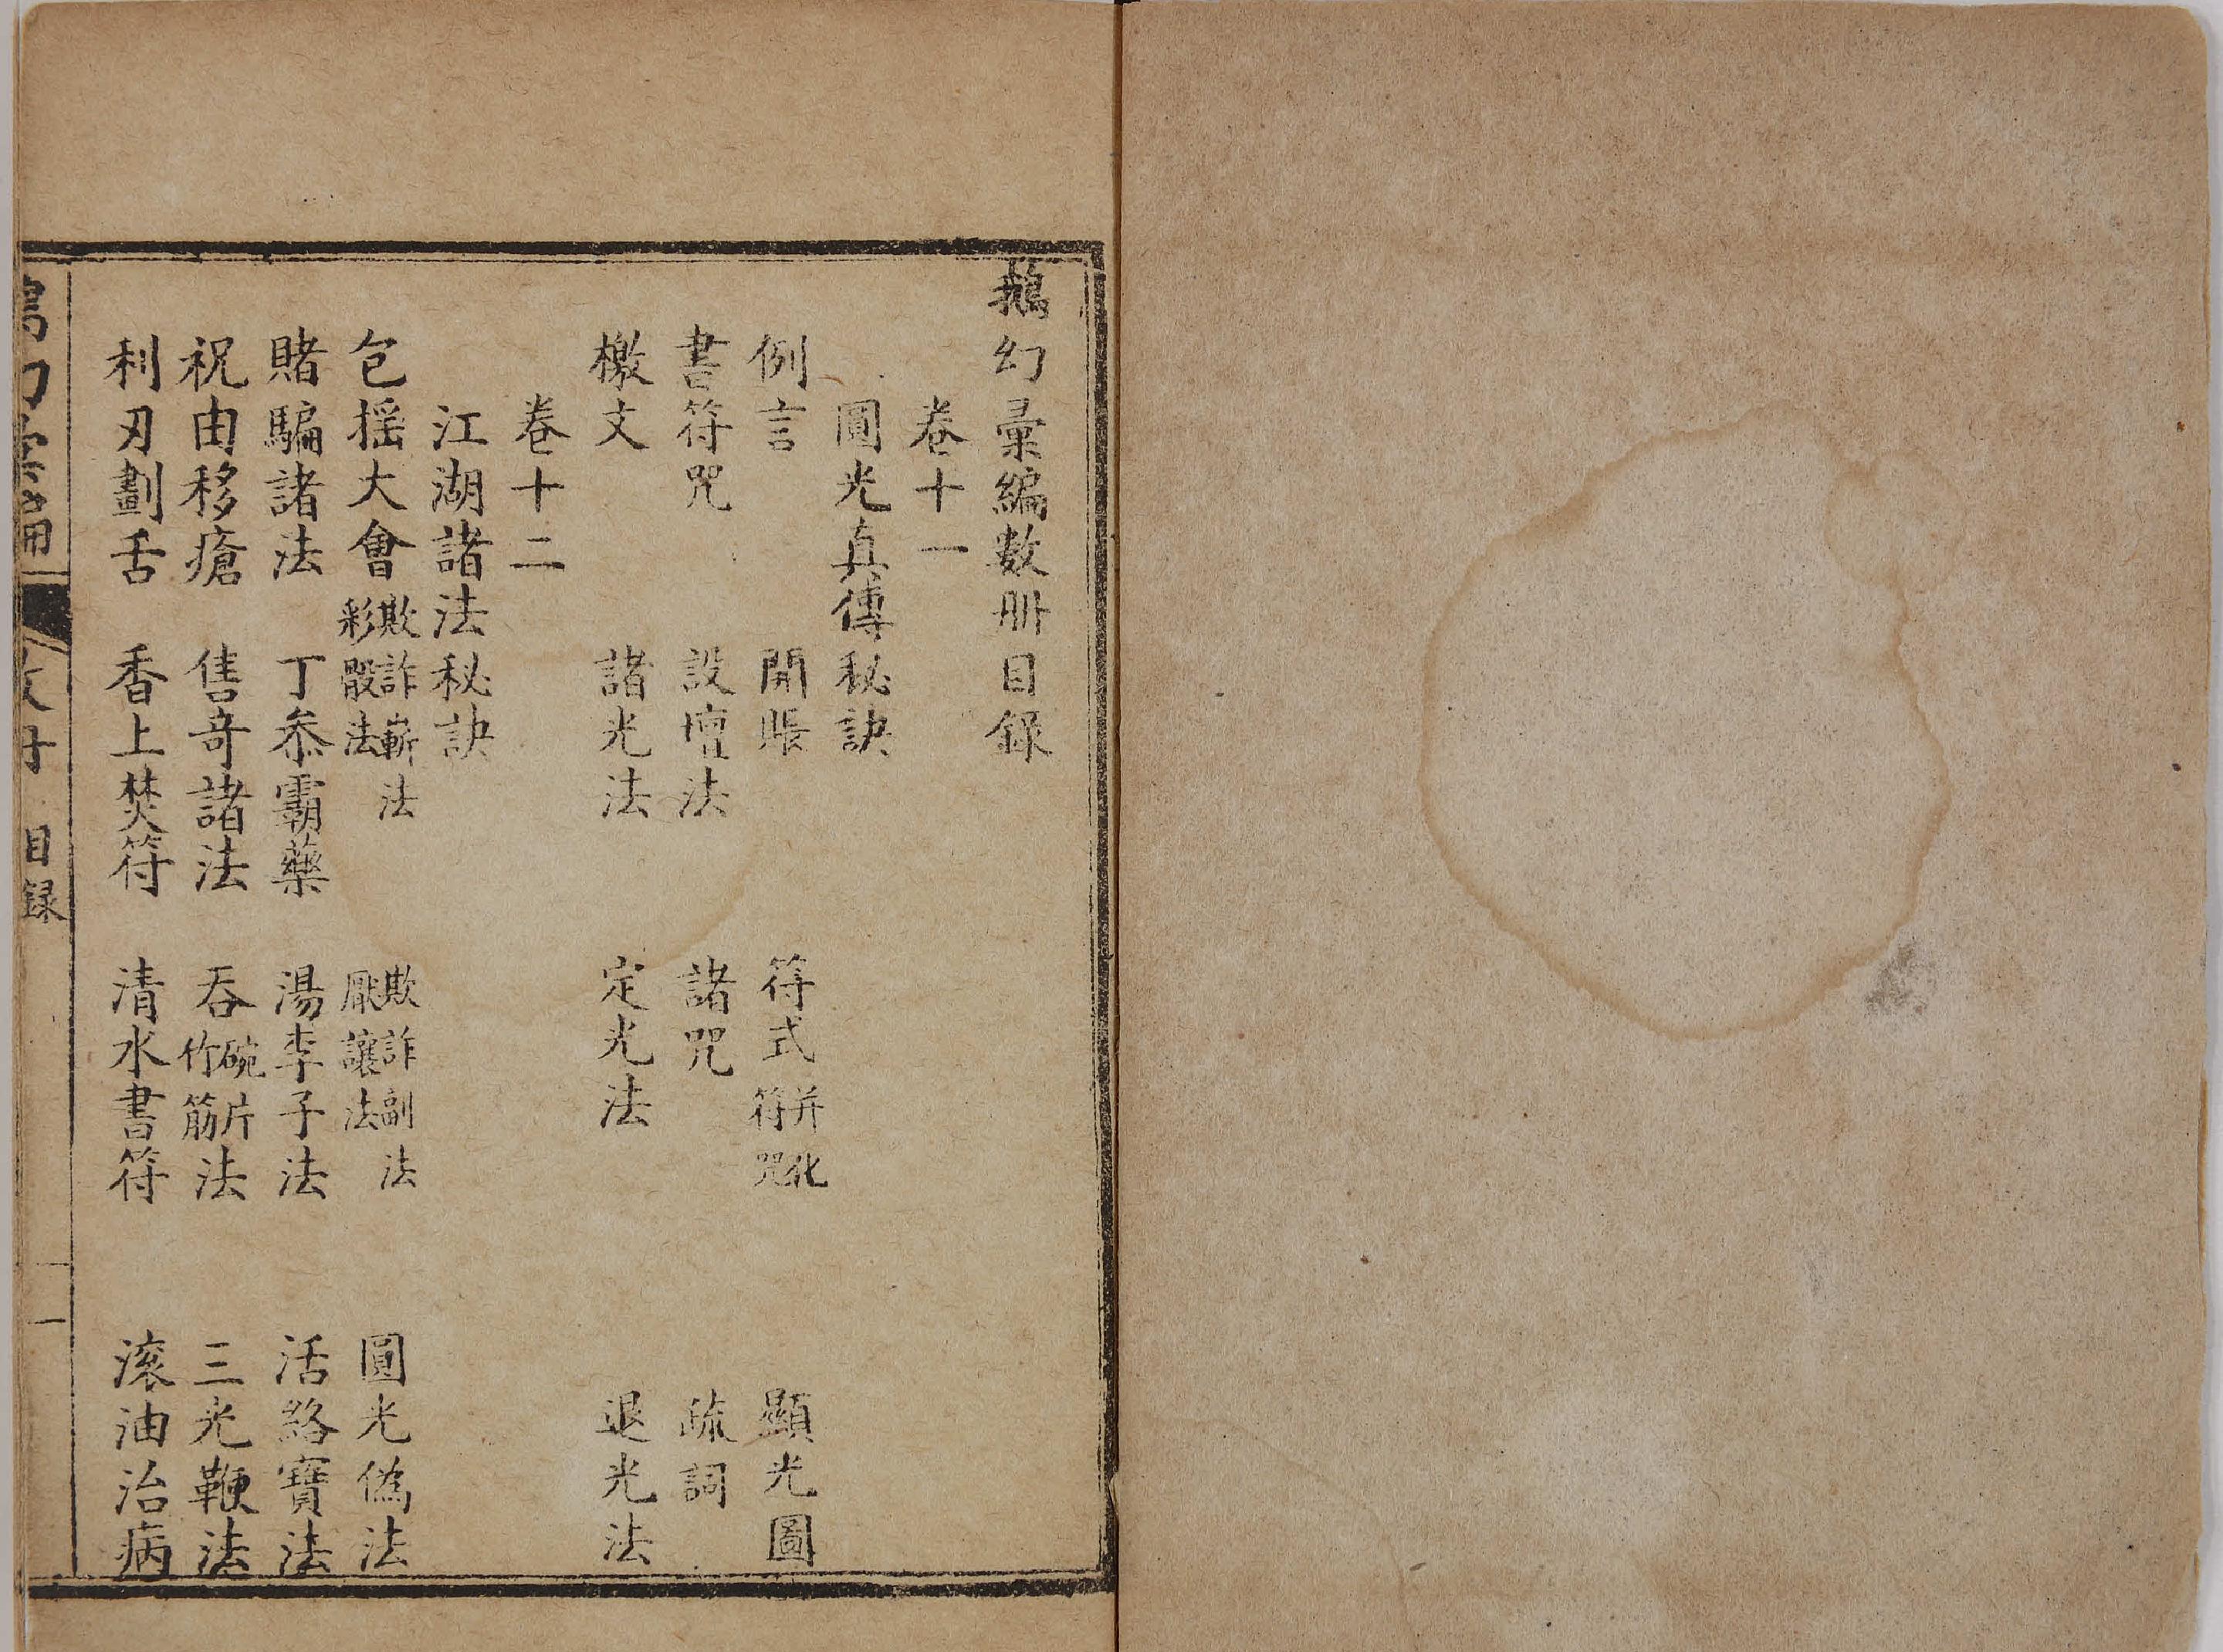 鵝幻彙編数册目録
卷十一
圓光真傳秘訣
例言　開賬　符式 并化符咒　顯光圖
書符咒　設壇法　諸咒　疏詞
檄文　諸光法　定光法　退光法
卷十二
江湖諸法秘訣
包揺大會 欺詐嶄法彩骰法　欺詐副法厭讓法　圓光偽法
賭騙諸法　丁叅霸藥　湯李子法　活絡寶法
祝由移瘡　售奇諸法　吞 碗片竹筋 法　三光鞭法
利刃劃舌　香上焚符　清水書符　滚油治病
目録
一